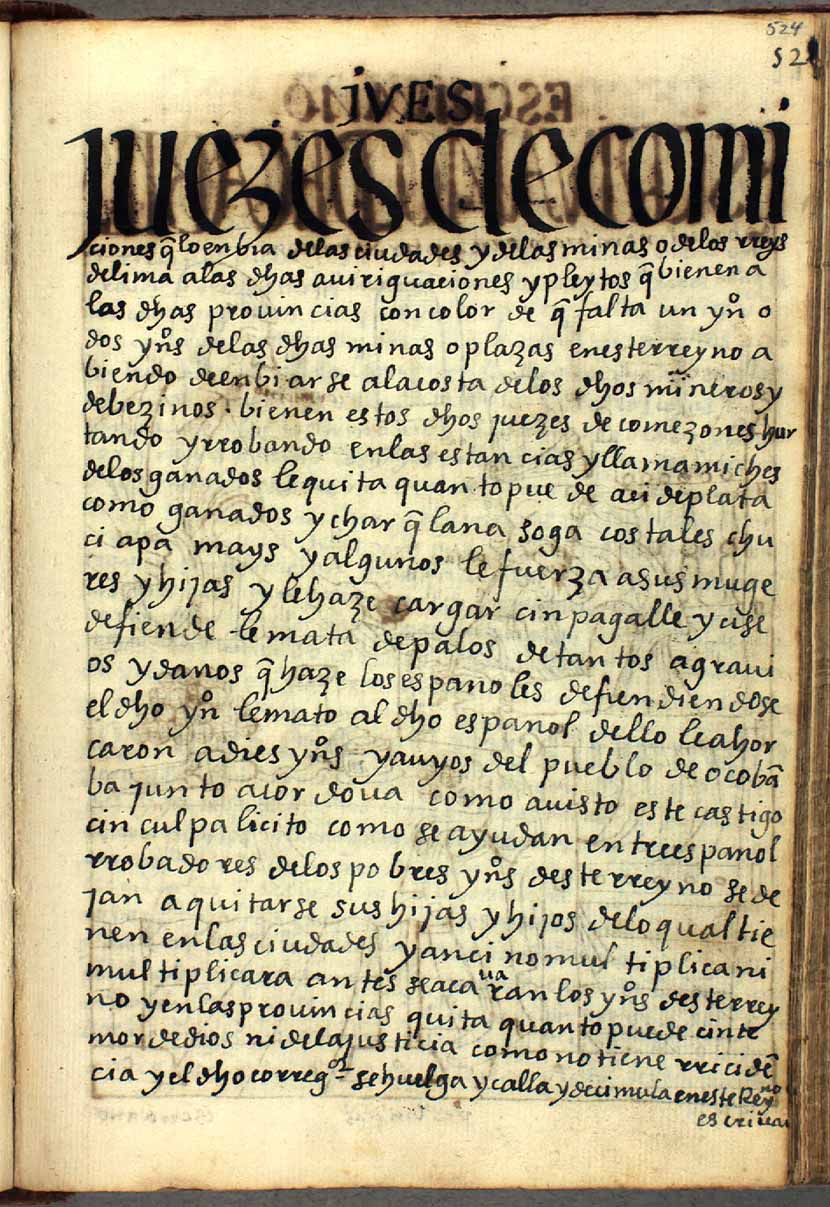 524
52
JVES
JUEZES DE COMI
ciones q̃ lo enbia de las ciudades y de las minas o de los rreys
de lima a las dhas auiriguaciones y pleytos q̃ bienen a
las dhas prouincias con color de q̃ falta un yno o
dos yns de las dhas minas o plazas en este rreyno a
biendo de enbiarse a la costa de los dhos mineros y
de bezinos. bienen estos dhos juezes de comezones hur
tando y rrobando en las estancias y llamamiches
de los ganados le quita quanto puede aci de plata
como ganados y char q̃ lana soga costales chu
ci apa mays y algunos le fuerza a sus muge
res y hijas y le haze cargar cin pagalle y ci se
defiende le mata de palos de tantos agraui
os y danos q̃ haze los espanoles defiendiendose
el dho yno le mato al dho espanol dello le ahor
caron a dies yns yauyos del pueblo de ocobã
ba junto a cordoua como auisto este castigo
cin culpa licito como se ayudan entre espanol
rrobadores de los pobres yns deste rreyno se de
jan a quitarse sus hijas y hijos de lo qual tie
nen en las ciudades y anci no multiplica ni
multiplicara antes se acauaran los yns deste rrey
no y en las prouincias quita quanto puede cin te
mor de dios ni de la justicia como no tiene rricidẽ
cia y el dho corregor se huelga y calla y decimula en este Reyno
escriuan